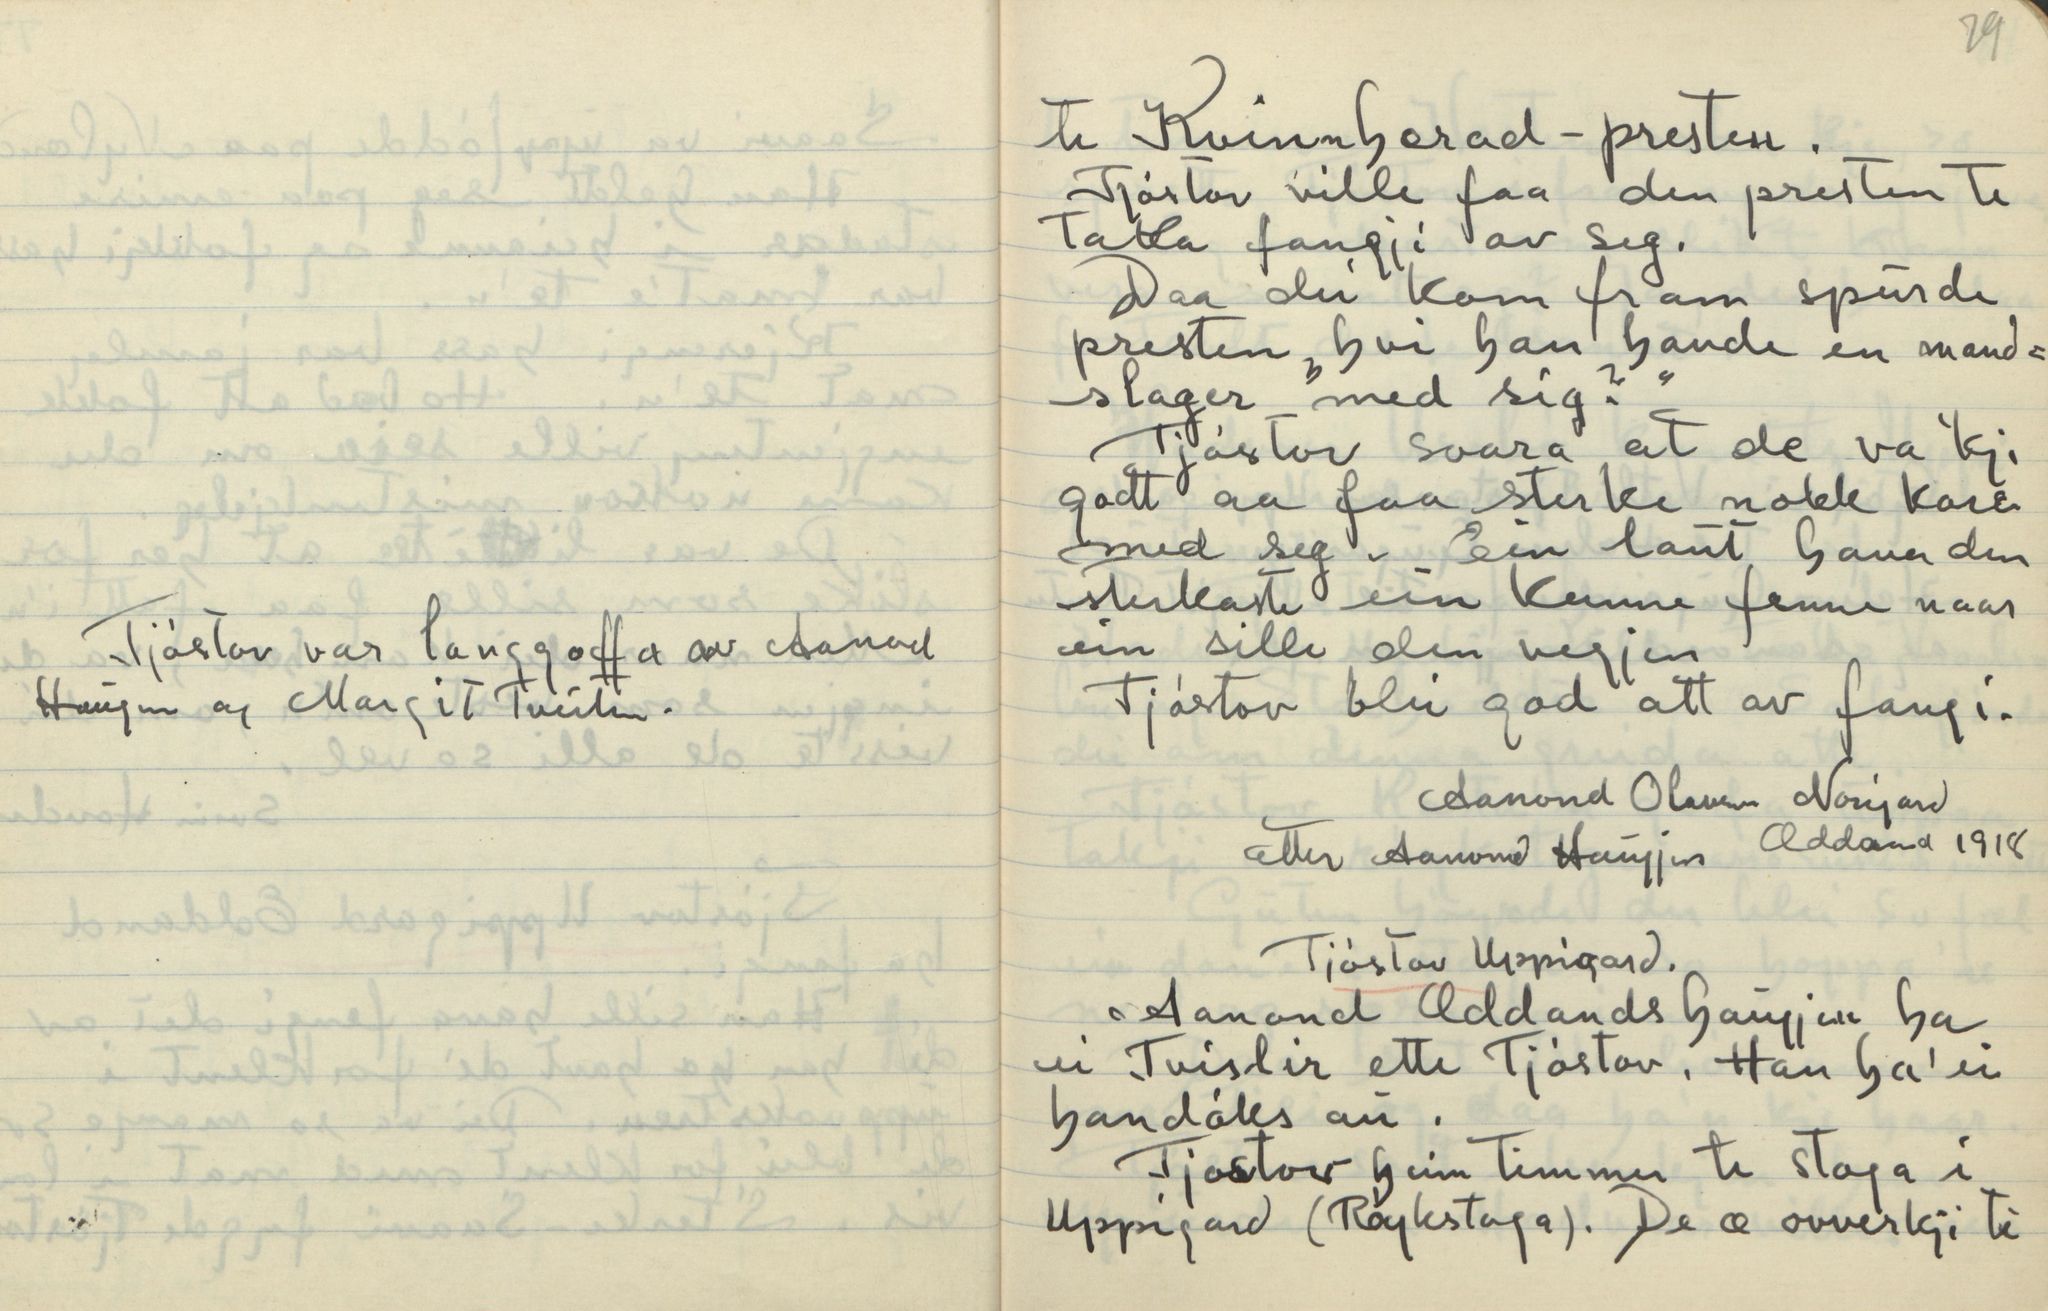 Tjóstov var langgoffa av Aanond
Haugjen og Margit Tveiten.
79
te Kvinnherad-presten.
Tjóstov ville faa den presten te
takka fangji av seg.
Daa dei kom fram spurde
presten „hvi han havde en mand=
slager "med sig?“
Tjóstov svara at de va 'kji
godt aa faa sterke nokk kare
med seg. Ein laut hava den
sterkaste ein kunne fenne naar
ein sille den vegjen
Tjóstov blei god att av fangi.
Aanond Olavsen Norigard
etter Aanond Haugjen Oddand 1918
Tjóstov Uppigard.
Aanond Oddandshaugjen ha
ei Tvislir ette Tjóstov. Han ha' ei
handóks au.
Tjostov heim timmer te stoga i
Uppigard (Røykstoga). De æ ovverkji te